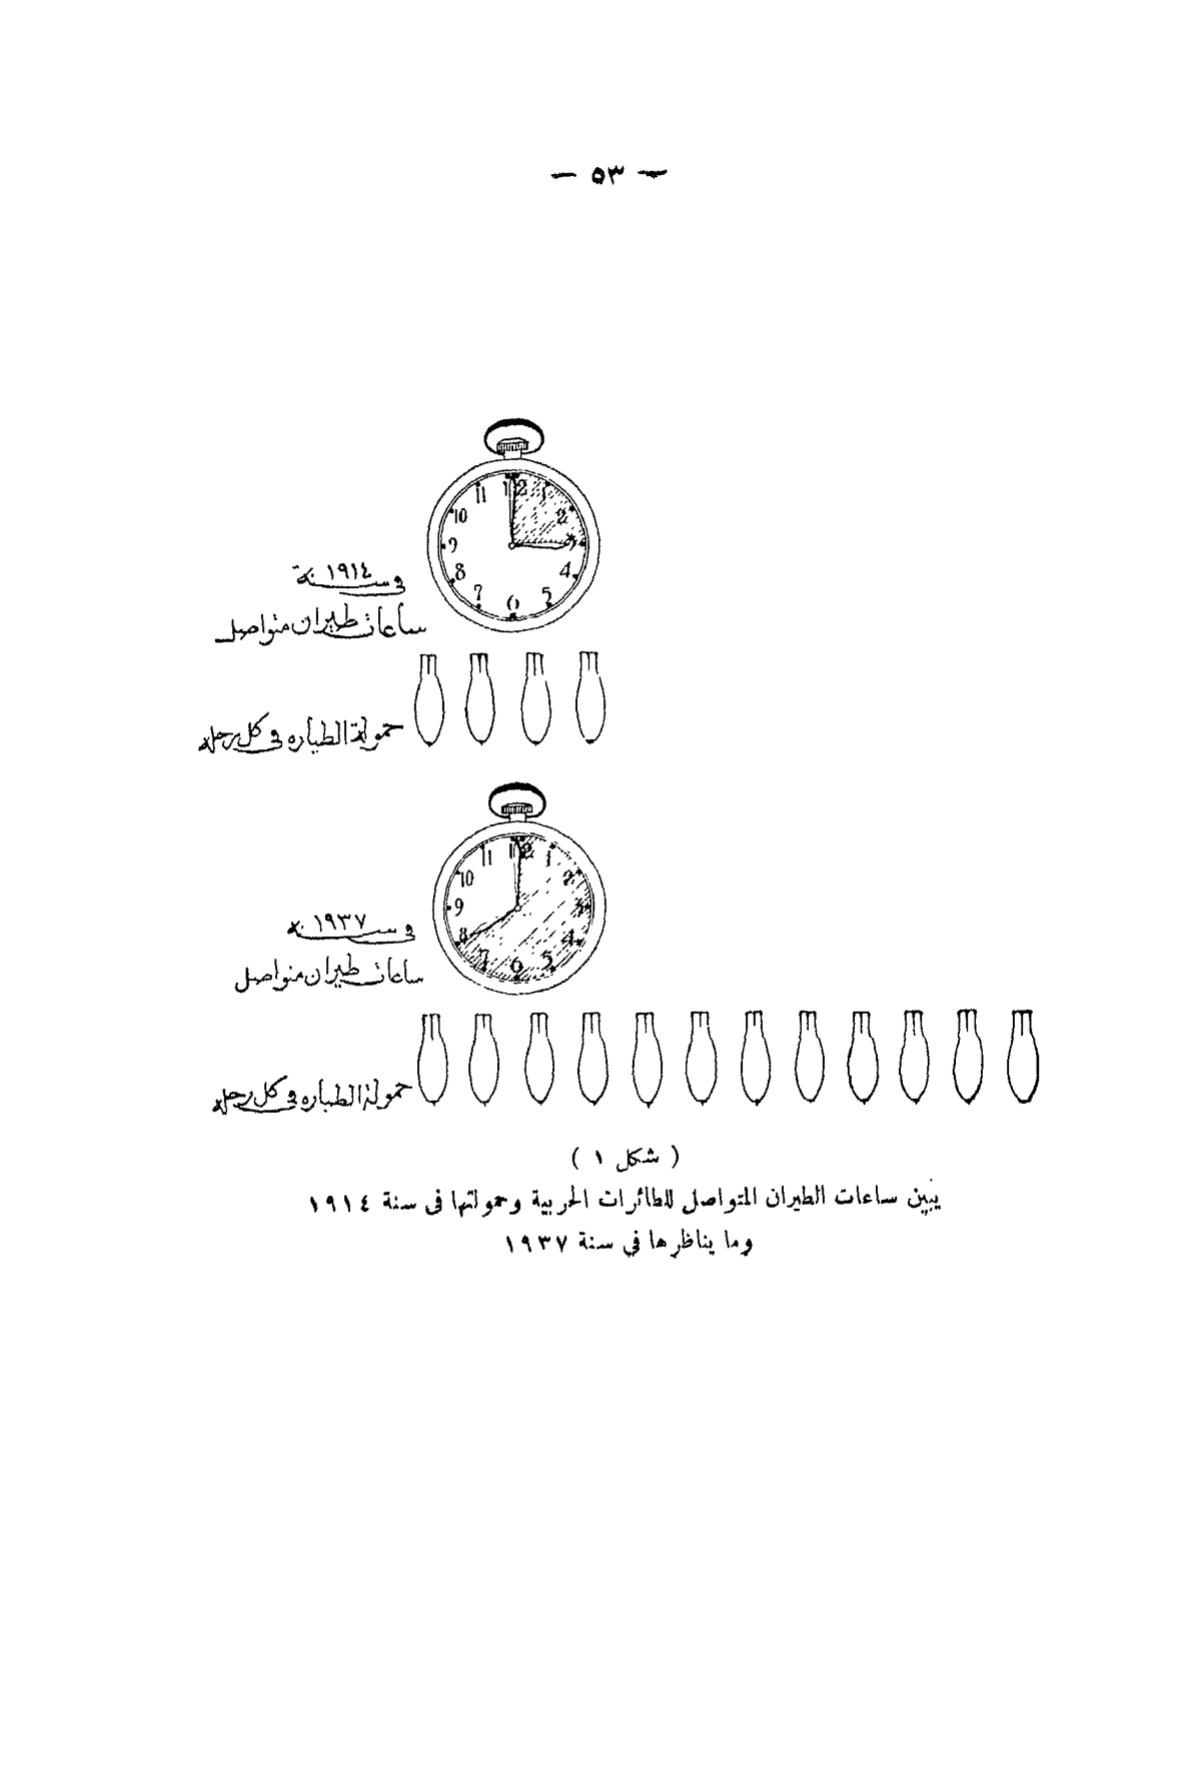 — ٥٣ —
12 1 2 3 4 5 6 7 8 9 10 11
في سنة ١٩١٤
ساعات طيران متواصل
حمولة الطياره في كل رحله
12 1 2 3 4 5 6 7 8 9 10 11
في سنة ١٩٣٧
ساعات طيران متواصل
حمولة الطياره في كل رحله
( شكل ١ )
يبين ساعات الطيران المتواصل للطائرات الحربية وحمولتها فى سنة ١٩١٤
وما يناظرها في سنة ١٩٣٧